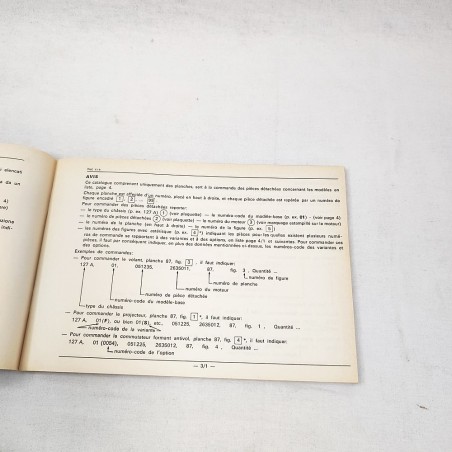 elencati
da un
4)
AVIS
Ce catalogue comprenant uniquement des planches, sert à la commande des pièces détachées concernant les modèles en
liste, page 4.
Chaque planche est affectée d'un numéro, placé en haut à droite, et chaque pièce détachée est repérée par un numéro de
figure encadré 1, 2, ...
Pour commander des pièces détachées reporter:
— le type du châssis (p. ex. 127 A) 1 (voir plaquette) — le numéro-code du modèle-base (p. ex. 01) - (voir page 4)
— le numéro de pièces détachées 2 (voir plaquette) — le numéro du moteur 3 (voir marquage estampillé sur le moteur)
— le numéro de la planche (en haut à droite) — le numéro de la figure (p. ex. 5)
— les numéros des figures avec astérisque (p. ex. 6*) indiquent les pièces pour lesquelles existent plusieurs numé-
ros de commande se rapportant à des variantes et à des options, en liste page 4/1 et suivantes. Pour commander ces
pièces, il faut par conséquent indiquer, en plus des données mentionnées ci-dessus, les numéros-code des variantes et
des options.
Exemples de commandes:
— Pour commander le volant, planche 87, fig. 3, il faut indiquer:
127 A, 01, 051225, 2635011, 87, fig. 3, Quantité ...
numéro de figure
numéro de planche
numéro du moteur
numéro de pièce détachée
numéro-code du modèle-base
type du châssis
— Pour commander le projecteur, planche 87, fig. 1*, il faut indiquer:
127 A, 01(F), ou bien 01(S), etc., 051225, 2635012, 87, fig. 1, Quantité ...
numéro-code de la variante
— Pour commander le commutateur formant antivol, planche 87, fig. 4*, il faut indiquer:
127 A, 01 (0004), 051225, 2635012, 87, fig. 4, Quantité ...
numéro-code de l'option
— 3/1 —